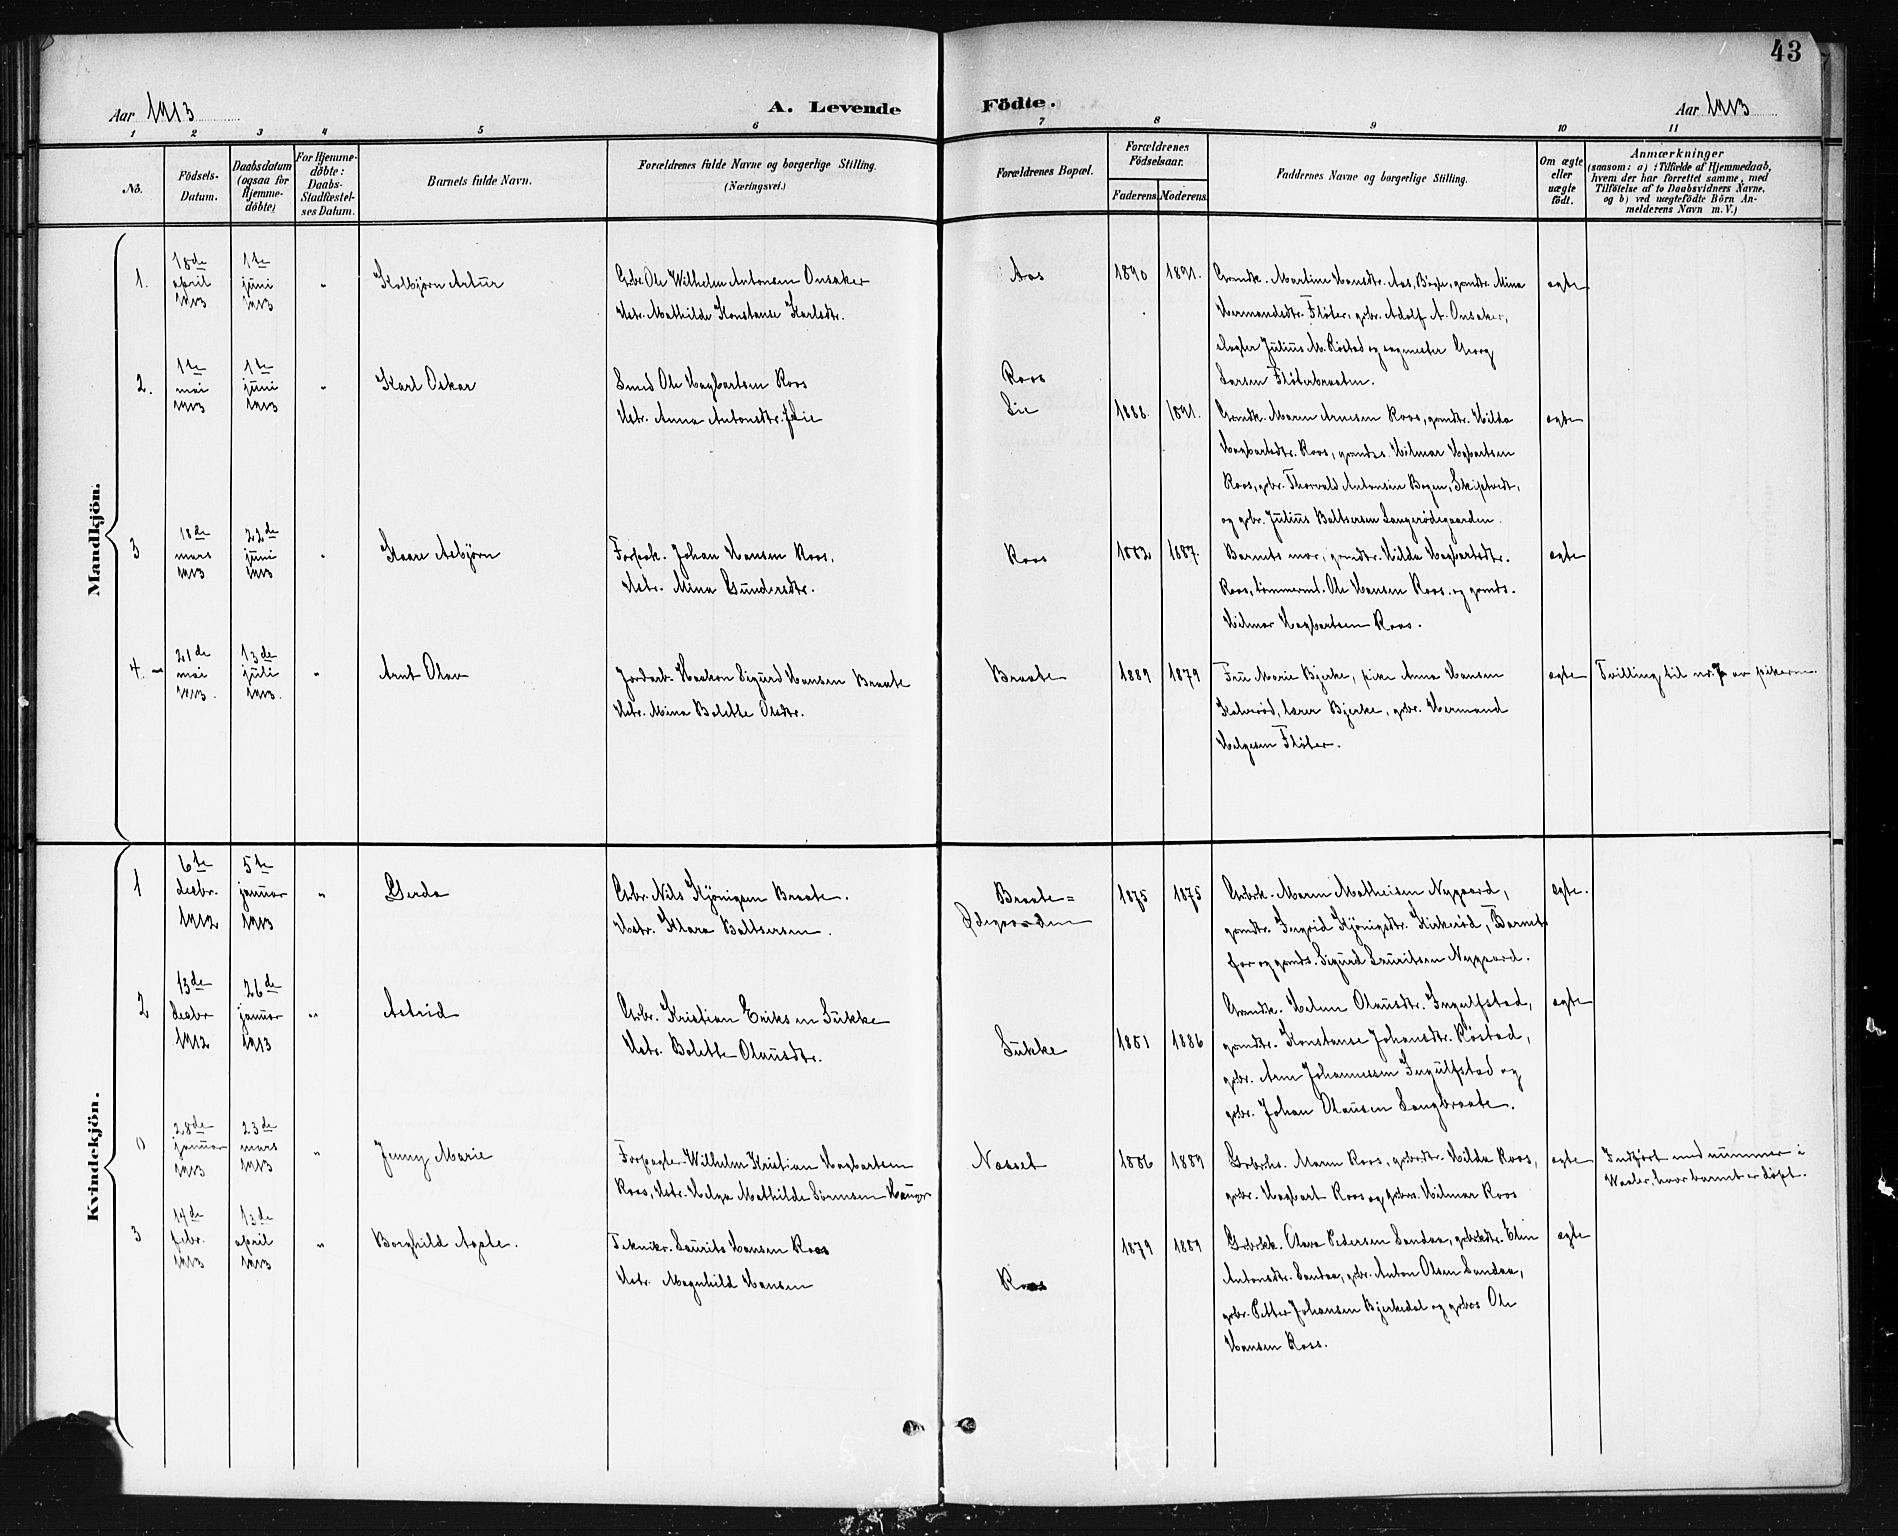 43
Aar 1913
A. Levende
Födte.
Aar 1913
1 2 3 4 5 6 7 8 9 10 11
No.
Födsels-
Datum.
Daabsdatum
(ogsaa for
Hjemme-
döbte)
For Hjemme-
döbte:
Daabs-
Stadfæstel-
ses Datum.
Barnets fulde Navn.
Forældrenes fulde Navne og borgerlige Stilling.
(Næringsvei.)
Forældrenes Bopæl.
Forældrenes
Födselsaar.
Faderens.
Moderens.
Faddernes Navne og borgerlige Stilling.
Om ægte
eller
uægte
födt.
Anmærkninger
(saasom: a) i Tilfælde af Hjemmedaab,
hvem der har forrettet samme, med
Tilföielse af to Daabsvidners Navne,
og b) ved uægtefödte Börn An-
melderens Navn m. V.)
Mandkjön.
1.
18de
april
1913
1te
juni
1913
"
Kolbjørn Artur
Gbr. Ole Wilhelm Antonsen Onsaker
Hstr. Mathilde Konstanse Karlsdtr.
Aas
1890
1891.
Grmdk. Martine Hansdtr. Aas, Bøgte, grmdtr. Mina
Hermandsdtr. Fløter, gbr. Adolf A. Onsaker,
slagter Julius M. Røstad og sagmester Georg
Larsen Fløterbraaten.
ægte
2.
1te
mai
1913
1te
juni
1913
"
Karl Oskar
Smed Ole Hagbartsen Roos
Hstr. Anna Antonsdtr. Lie
Roos
Lie
1888.
1891.
Grmdk. Maren Arnesen Roos, grmdtr. Hilda
Hagbartsdtr. Roos, grmds. Hilmar Hagbartsen
Roos, gbr. Thorvald Antonsen Bogen, Skiptvedt,
og gbr. Julius Baltsersen Langerødegaarden.
ægte
3
18de
mars
1913
22de
juni
1913
"
Kaare Asbjørn
Forpak. Johan Hansen Roos,
Hstr. Mina Gundersdtr.
Roos
1882
1887.
Barnets mor, grmdtr. Hilda Hagbartsdtr.
Roos, tømmermd. Ole Hansen Roos og grmds.
Hilmar Hagbartsen Roos.
ægte
4. —
21de
mai
1913.
13de
juli
1913.
"
Arnt Olav
Jordarb. Haakon Sigurd Hansen Braate
Hstr. Mina Bolette Olsdtr.
Braate
1889
1879
Fru Marie Bjerke, pike Anna Hansen
Kalverød, lærer Bjerke, gbr. Hermand
Helgesen Fløter.
ægte
Tvilling til nr. 7 av pikerne.
Kvindekjön.
1
6te
decbr.
1912
5te
januar
1913
"
Gerda
Gbr. Nils Kjønigsen Braate.
Hstr. Klara Baltsersen.
Braate=
Ødegaarden
1875
1875
Gbrk. Maren Matheisen Nygaard,
grmdtr. Ingrid Kjønigsdtr. Kirkerød, Barnets
far og grmds. Sigurd Lauritsen Nygaard.
Ægte.
2
13de
decbr
1912
26de
januar
1913
"
Astrid
Gbr. Kristian Eriksen Sukke
Hstr. Bolette Olausdtr.
Sukke
1881
1886
Grmdk. Helene Olausdtr. Ingulfstad,
grmdtr. Konstanse Johansdtr. Røstad,
gbr. Arne Johannessen Ingulfstad og
gbr. Johan Olausen Langbraate.
ægte
0
28de
januar
1913
23de
mars
1913
"
Jenny Marie
Forpagter Wilhelm Kristian Hagbartsen
Roos, Hstr. Helga Mathilde Sørensen Hauger
Næsset
1886
1889
Grbrks. Maren Roos, grbrdtr. Hilda Roos,
gbr. Hagbart Roos og grbrs. Hilmar Roos
ægte
Indført med nummer i
Waaler, hvor barnet er døpt.
3
14de
febr.
1913
13de
april
1913
"
Borghild Agate.
Teknikr. Laurits Hansen Roos
Hstr. Magnhild Hansen
Roos
1879
1889
Grbrkk. Olava Pedersen Sandaa, gbrdtr. Elin
Antonsdtr. Sandaa, gbr. Anton Olsen Sandaa,
gbr. Petter Johansen Bjerkedal og gbrs Ole
Hansen Roos.
ægte